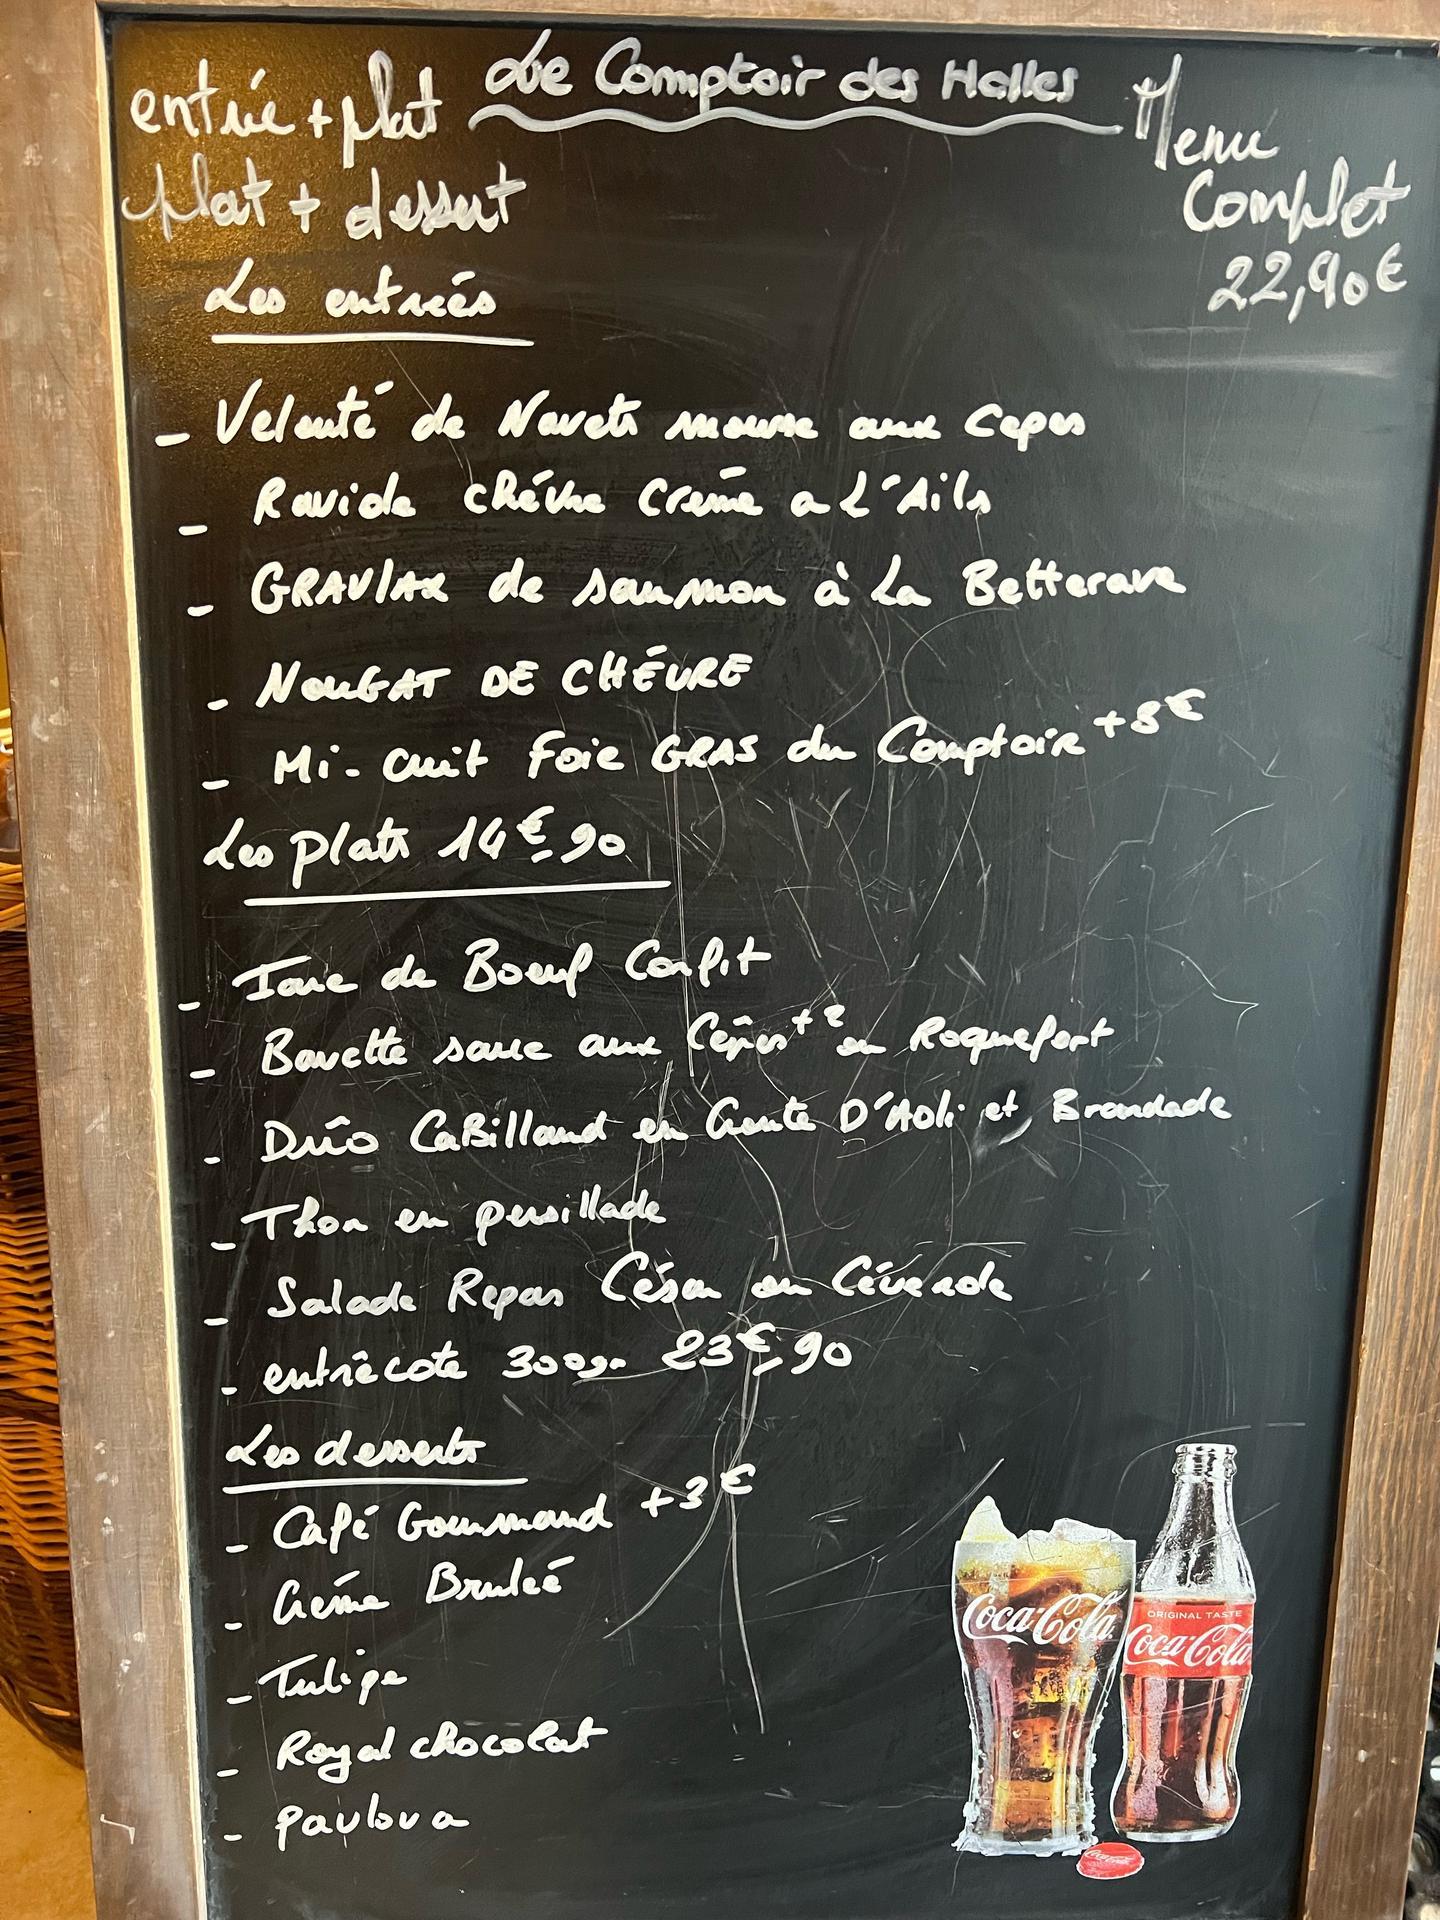 Le Comptoir des Halles
entrée + plat
plat + dessert
Menu
Complet
22,90€
Les entrées
- Velouté de Navets mousse aux Cepes
- Raviole chévre Crème a L'Ails
- GRAVlAX de saumon à La Betterave
- NOUGAT DE CHÉVRE
- Mi-cuit Foie GRAS du Comptoir +8€
Les plats 14€90
- de Boeuf Confit
- Bavette sauce aux Cêpes +2 ou Roquefort
- Dûo CaBillaud en Croute D'Aoli et Brandade
- Thon en persillade
- Salade Repas César ou Cévenole
- entrêcote 300gr 23€90
Les desserts
- Café Gourmand +3€
- Créme Bruleé
- Tulipe
- Royal chocolat
- pavlova
Coca-Cola
ORIGINAL TASTE
Coca-Cola